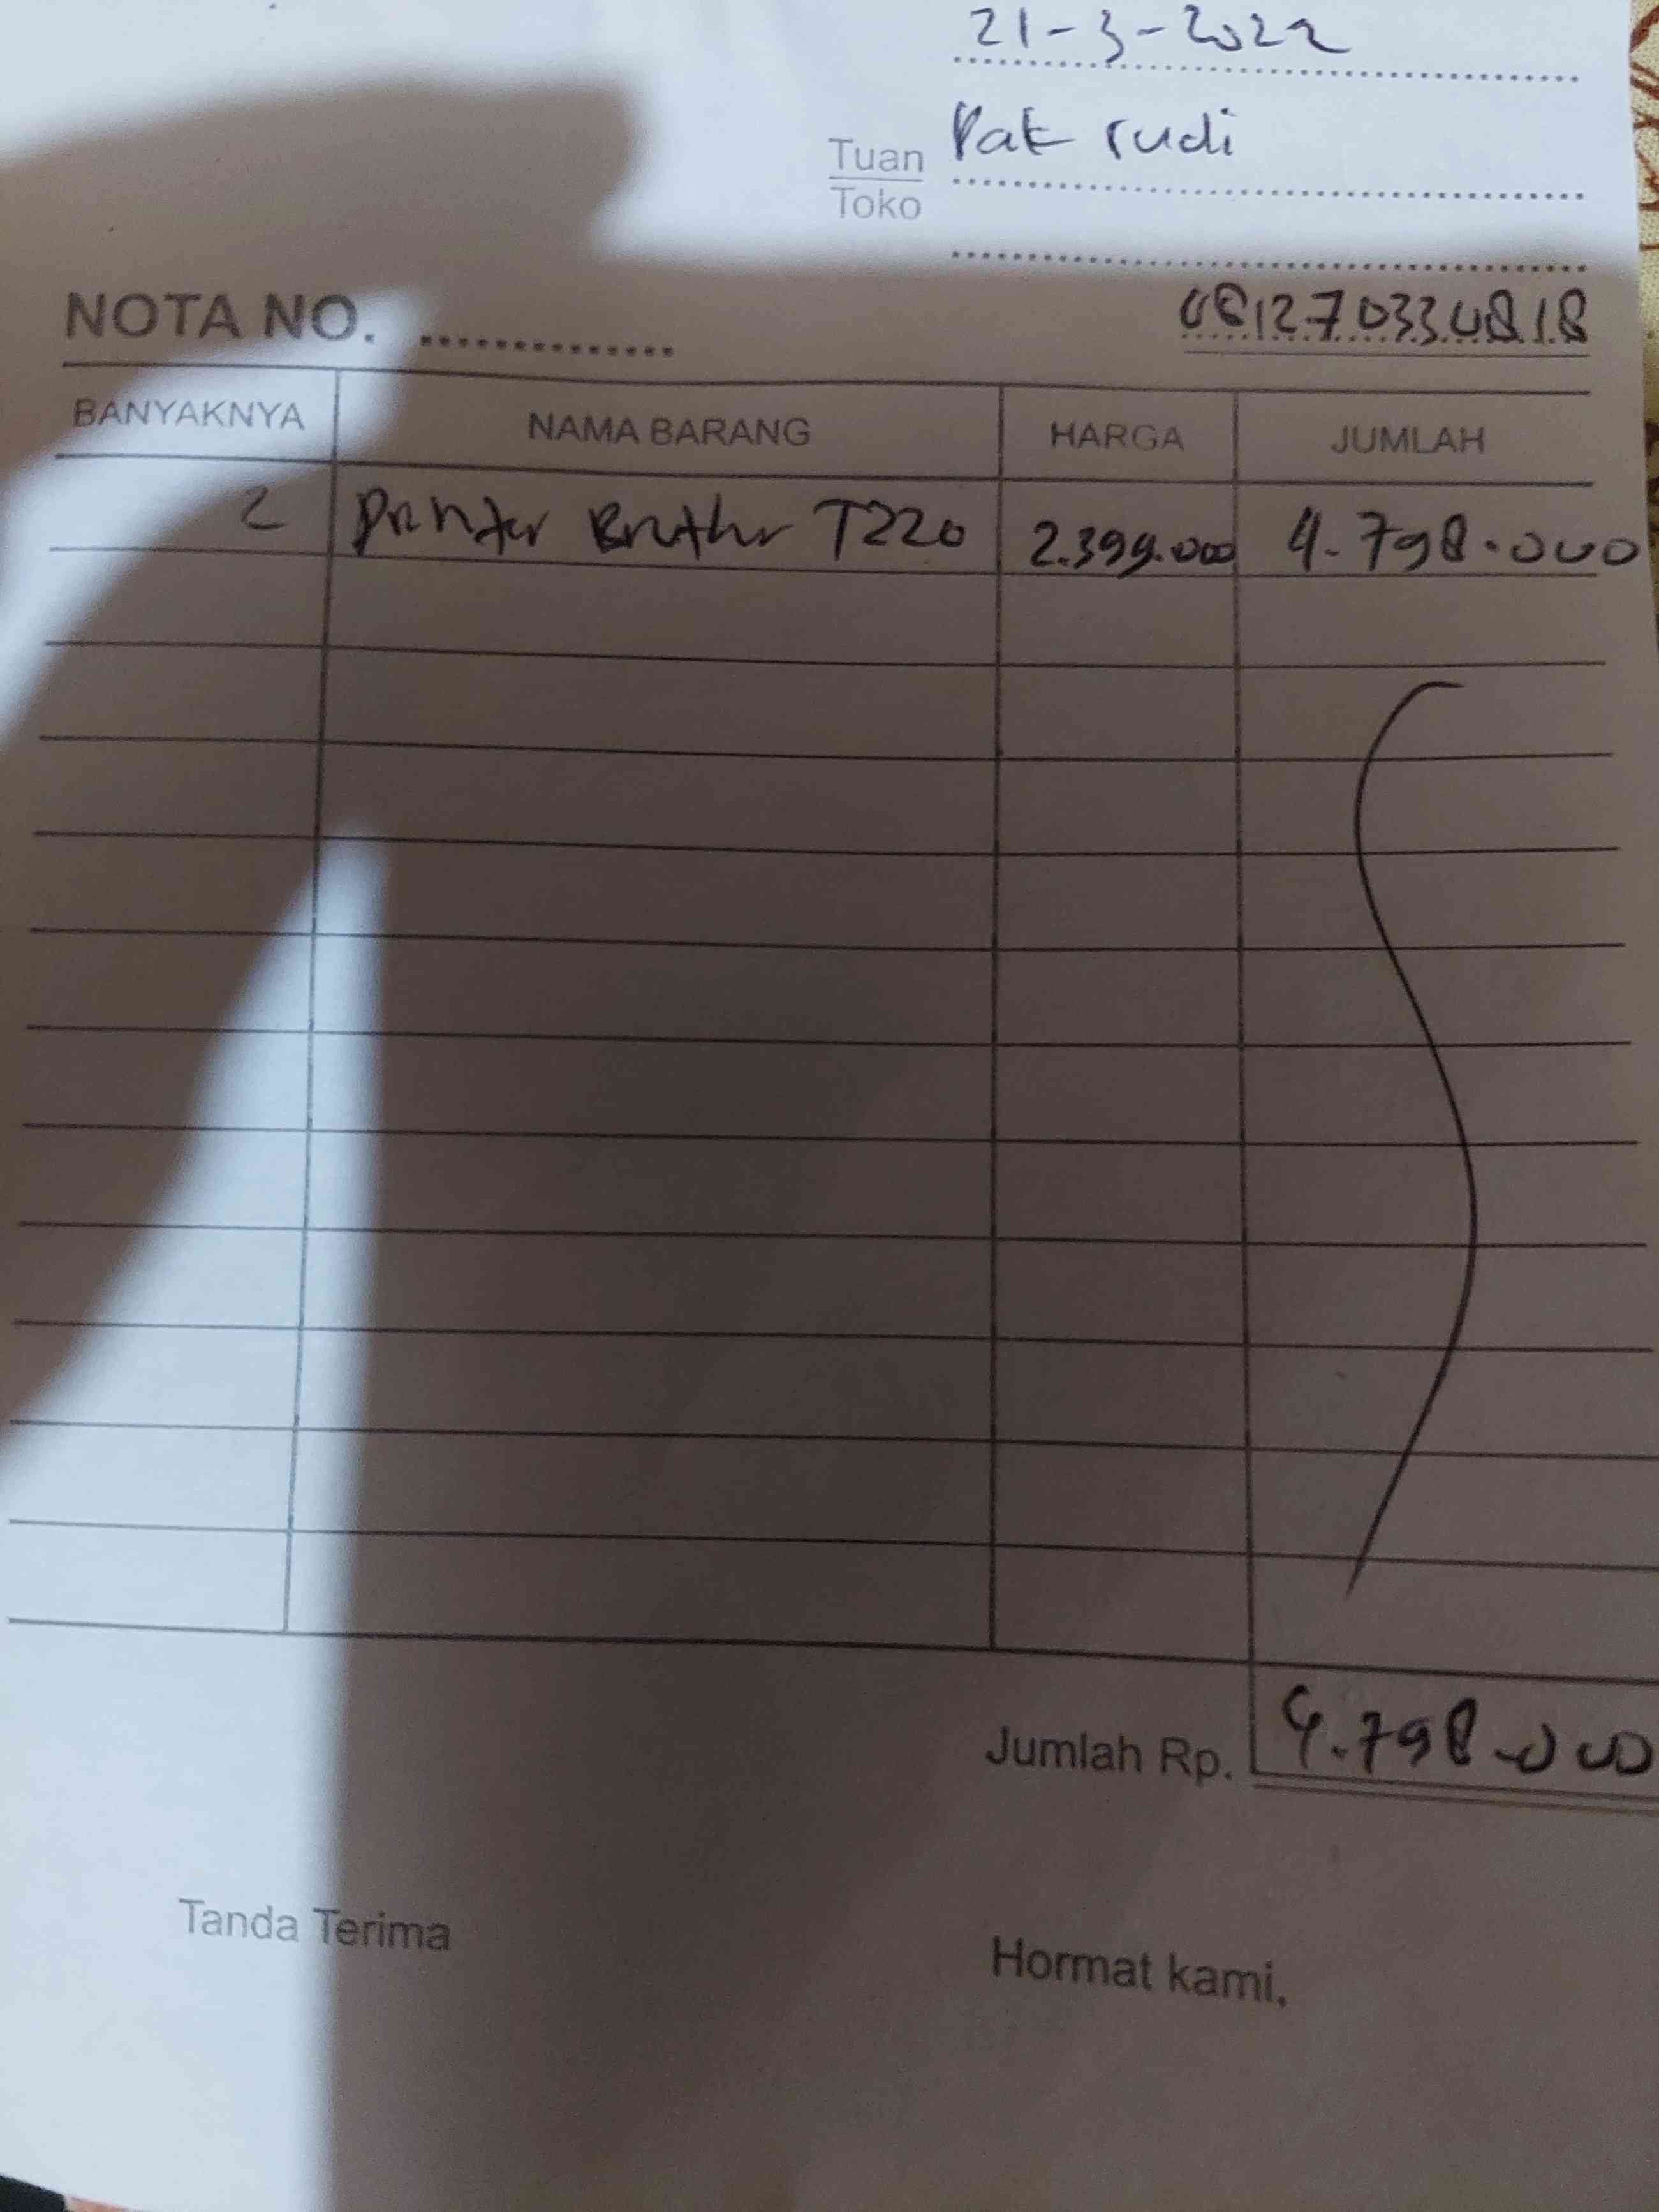 21-3-2022
Tuan Pak rudi
Toko
NOTA NO. ..............
081270330818
BANYAKNYA NAMA BARANG HARGA JUMLAH
2 Printer Brother T220 2.399.000 4.798.000
Jumlah Rp. 4.798.000
Tanda Terima Hormat kami,